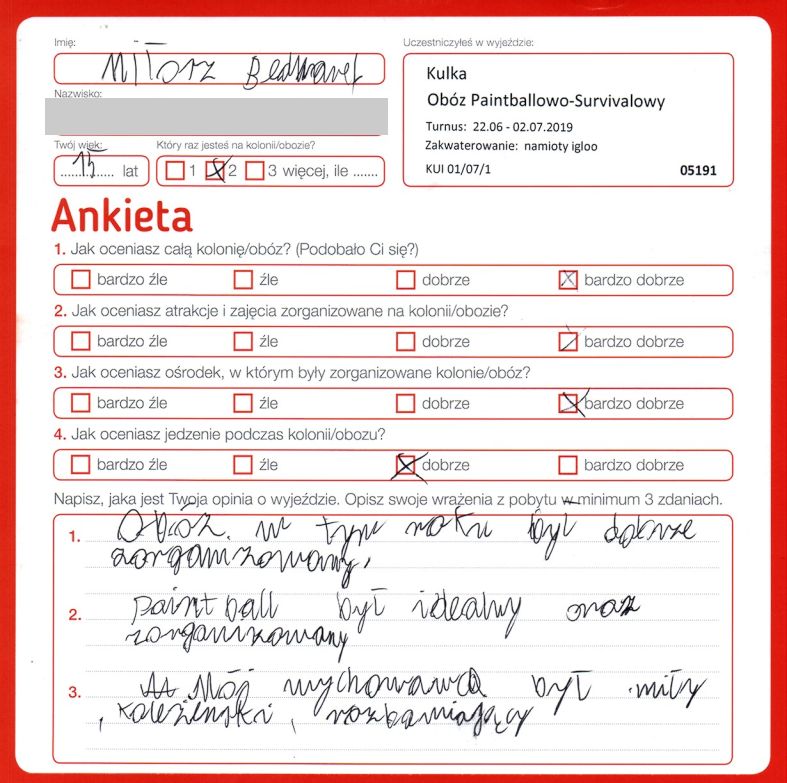 Imię:
Miłosz
Nazwisko:
Twój wiek:
15 lat
Który raz jesteś na kolonii/obozie?
1 2 3 więcej, ile .......
Uczestniczyłeś w wyjeździe:
Kulka
Obóz Paintballowo-Survivalowy
Turnus: 22.06 - 02.07.2019
Zakwaterowanie: namioty igloo
KUI 01/07/1 05191
Ankieta
1. Jak oceniasz całą kolonię/obóz? (Podobało Ci się?)
bardzo źle źle dobrze bardzo dobrze
2. Jak oceniasz atrakcje i zajęcia zorganizowane na kolonii/obozie?
bardzo źle źle dobrze bardzo dobrze
3. Jak oceniasz ośrodek, w którym były zorganizowane kolonie/obóz?
bardzo źle źle dobrze bardzo dobrze
4. Jak oceniasz jedzenie podczas kolonii/obozu?
bardzo źle źle dobrze bardzo dobrze
Napisz, jaka jest Twoja opinia o wyjeździe. Opisz swoje wrażenia z pobytu w minimum 3 zdaniach.
1. Obóz w tym roku był dobrze
zorganizowany,
2. paintball był idealny oraz
zorganizowany
3. Mój wychowawca był miły
, koleżeński, rozbawiający